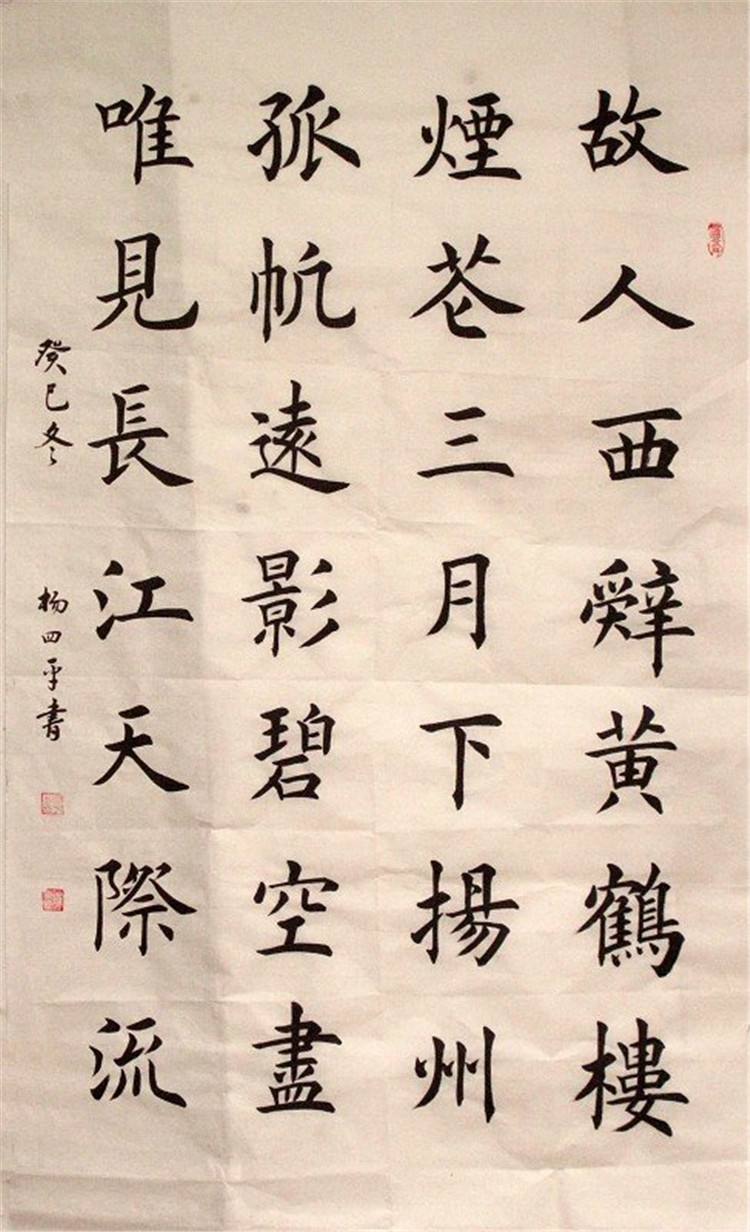 故人西辭黃鶴樓
煙花三月下揚州
孤帆遠影碧空盡
唯見長江天際流
癸巳冬
楊四平書